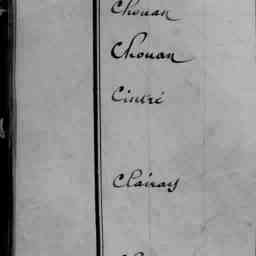 Chouan
Chouan
Cintré
Clairay